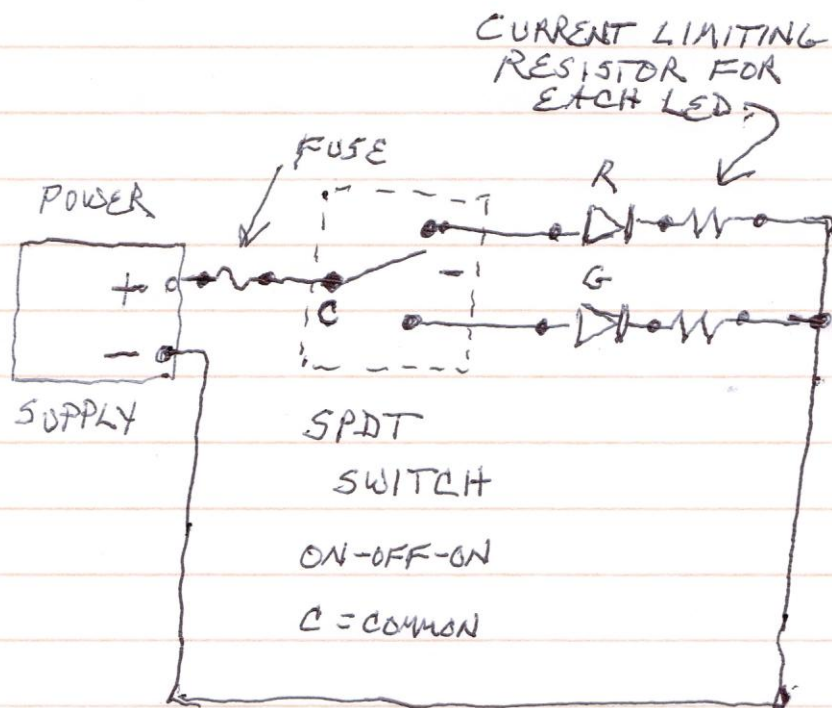 CURRENT LIMITING
RESISTOR FOR
EACH LED.
FUSE
POWER
R
+
-
G
C
-
SUPPLY
SPDT
SWITCH
ON-OFF-ON
C = COMMON